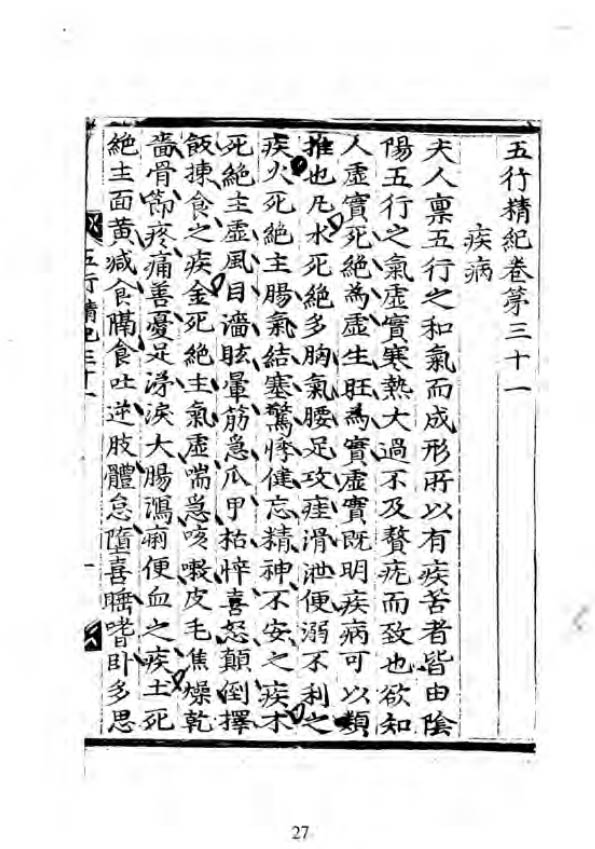 五行精紀卷第三十一
疾病
夫人稟五行之和氣而成形所以有疾苦者皆由陰
陽五行之氣虛實寒熱大過不及贅疣而致也欲知
人虛實死絕為虛生旺為實虛實既明疾病可以類
推也凡水死絕多胸氣腰足攻疰滑泄便溺不利之
疾火死絕主腸氣結塞驚悸健忘精神不安之疾木
死絕主虛風目濇眩暈筋急爪甲枯悴喜怒顛倒擇
飯揀食之疾金死絕主氣虛喘急咳嗽皮毛焦燥乾
嗇骨節疼痛善憂足涕淚大腸瀉痢便血之疾土死
絕主面黃減食膈食吐逆肢體怠墮喜睡嗜卧多思
五行精紀三十一
一
27